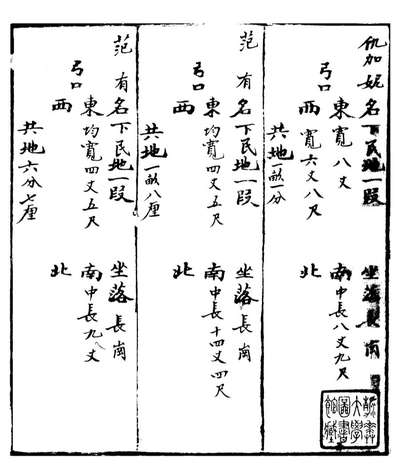 仉加妮名下民地一段 坐落長南
弓口
東寬八丈 南中長八丈九尺
西寬六丈八尺 北
共地一畝一分
范有名下民地一段 坐落長南
弓口
東均寬四丈五尺 南中長十四丈四尺
西 北
共地一畝八厘
范有名下民地一段 坐落長南
弓口
東均寬四丈五尺 南中長九丈
西 北
共地六分七厘
大學
圖書
館藏